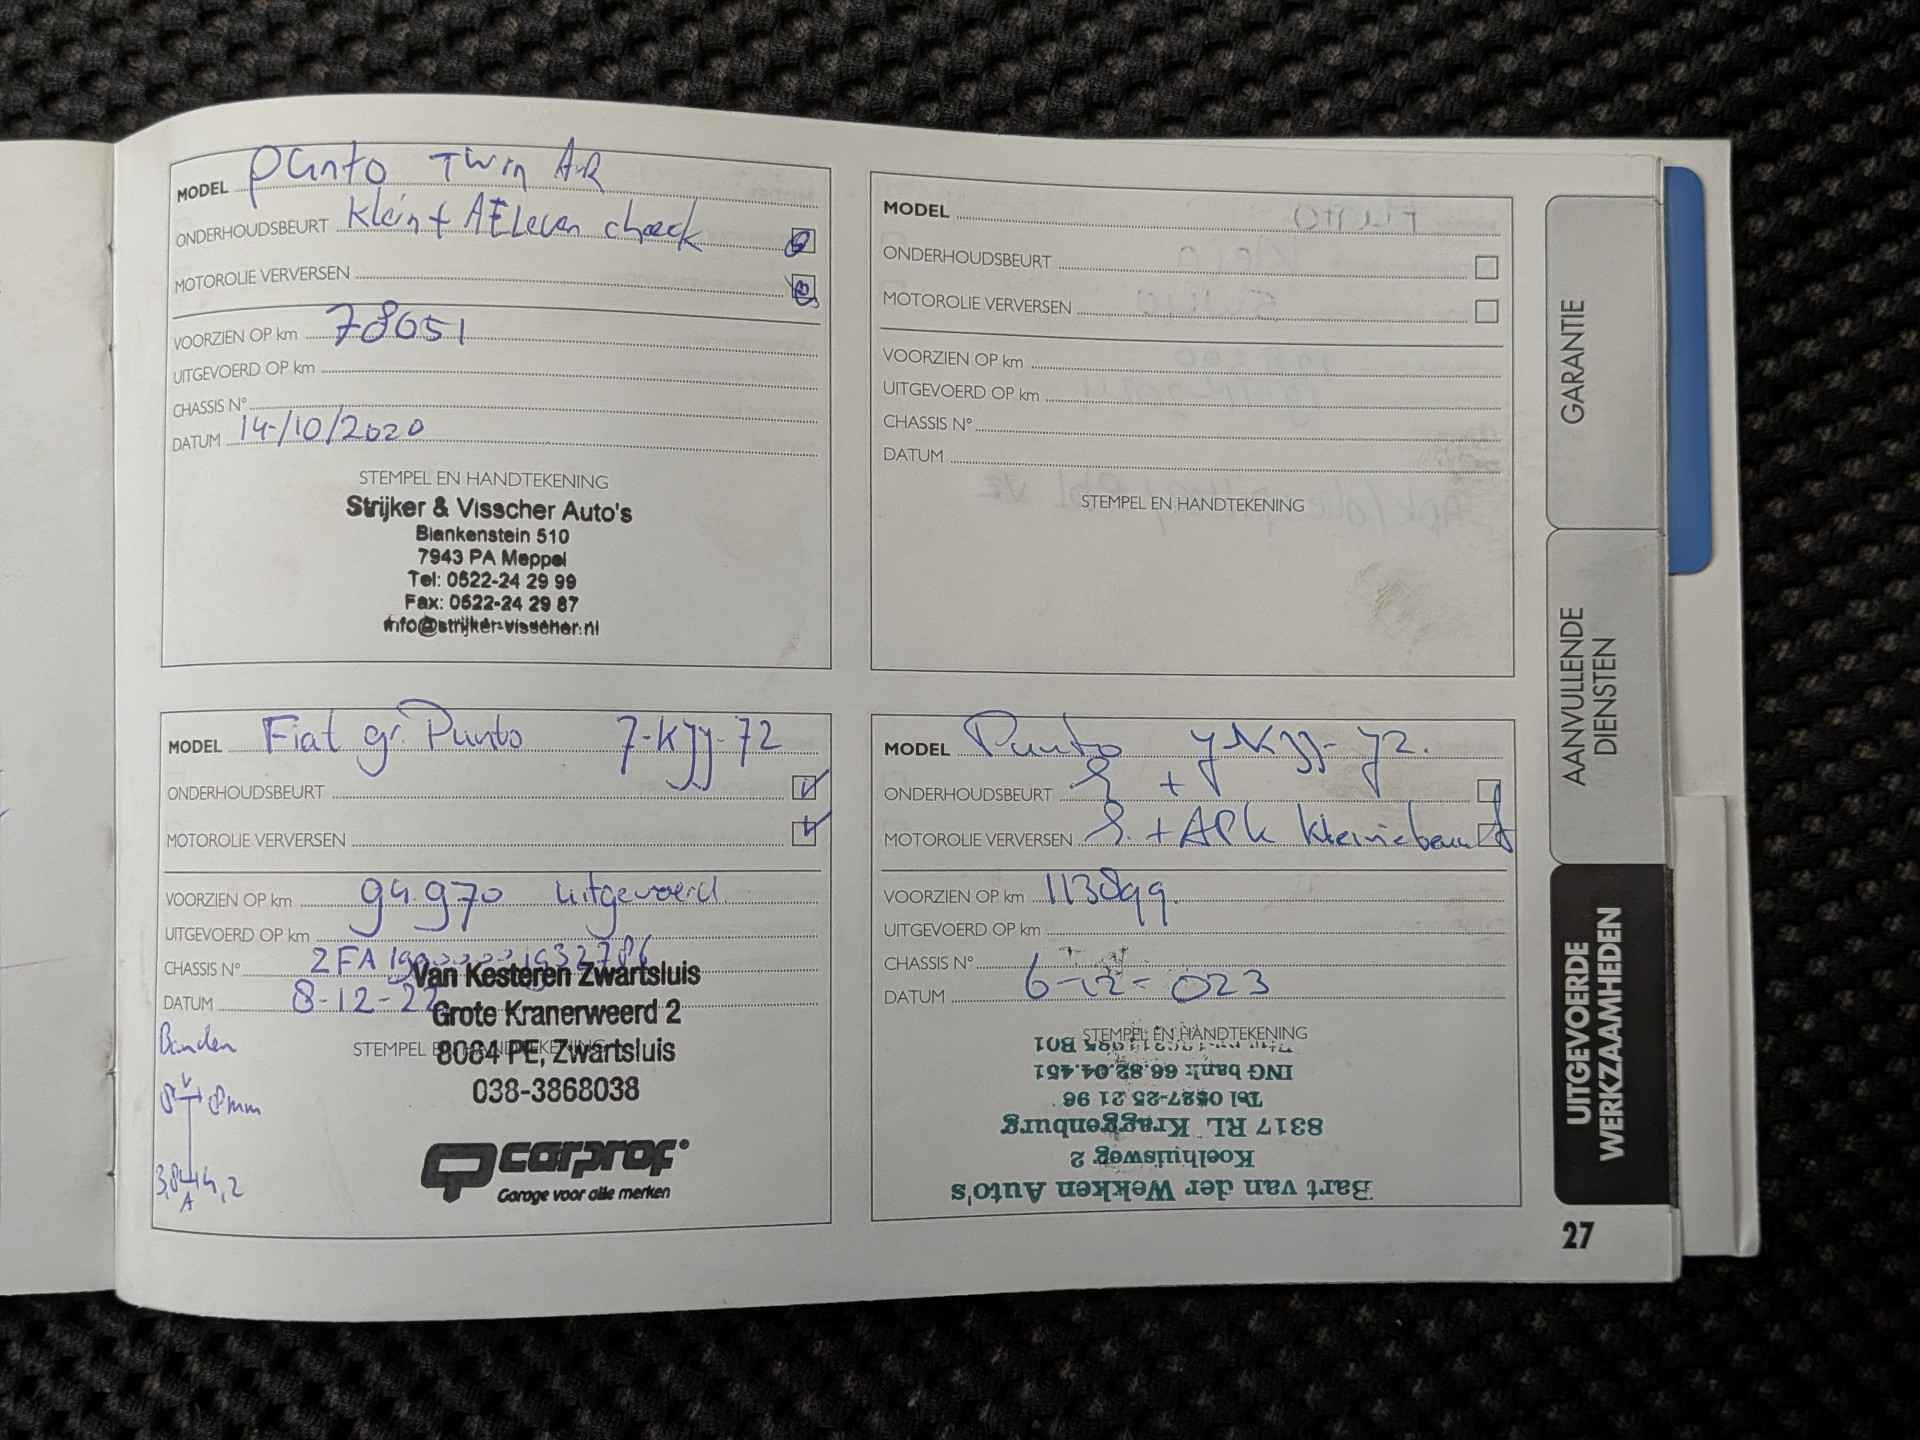 MODEL Punto Twin AR
ONDERHOUDSBEURT Klein + check
MOTOROLIE VERVERSEN
VOORZIEN OP km 78051
UITGEVOERD OP km
CHASSIS N°
DATUM 14-/10/2020
STEMPEL EN HANDTEKENING
Strijker & Visscher Auto's
Blankenstein 510
7943 PA Meppel
Tel: 0522-24 29 99
Fax: 0522-24 29 87
info@strijker-visscher.nl
MODEL
ONDERHOUDSBEURT
MOTOROLIE VERVERSEN
VOORZIEN OP km
UITGEVOERD OP km
CHASSIS N°
DATUM
STEMPEL EN HANDTEKENING
MODEL Fiat gr. Punto 7-KJJ-72
ONDERHOUDSBEURT
MOTOROLIE VERVERSEN
VOORZIEN OP km 94.970 uitgevoerd
UITGEVOERD OP km
CHASSIS N°
DATUM 8-12-22
STEMPEL EN HANDTEKENING
Van Kesteren Zwartsluis
Grote Kranerweerd 2
8064 PE, Zwartsluis
038-3868038
carprof
Garage voor alle merken
Banden
V
8 8mm
3,8 4,2
A
MODEL Punto
ONDERHOUDSBEURT
MOTOROLIE VERVERSEN + APK kleine beurt
VOORZIEN OP km 113899.
UITGEVOERD OP km
CHASSIS N°
DATUM 6-12-023
STEMPEL EN HANDTEKENING
Bart van der Wekken Auto's
Koelhuisweg 2
8317 RL Kraggenburg
Tel 0527-25 21 96
ING bank 66.82.04.451
B01
GARANTIE
AANVULLENDE
DIENSTEN
UITGEVOERDE
WERKZAAMHEDEN
27